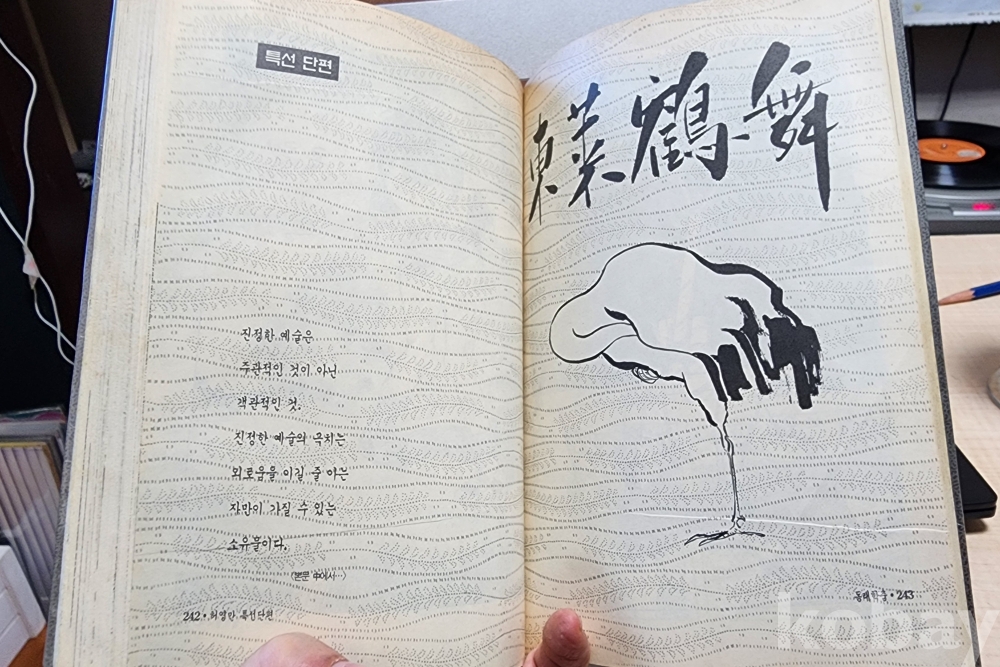 특선 단편
진정한 예술은
주관적인 것이 아닌
객관적인 것.
진정한 예술의 극치는
외로움을 이길 줄 아는
자만이 가질 수 있는
소유물이다.
〈본문 中에서…〉
242 • 허영만 특선단편
東莱鶴舞
동래학춤 • 243
kobay